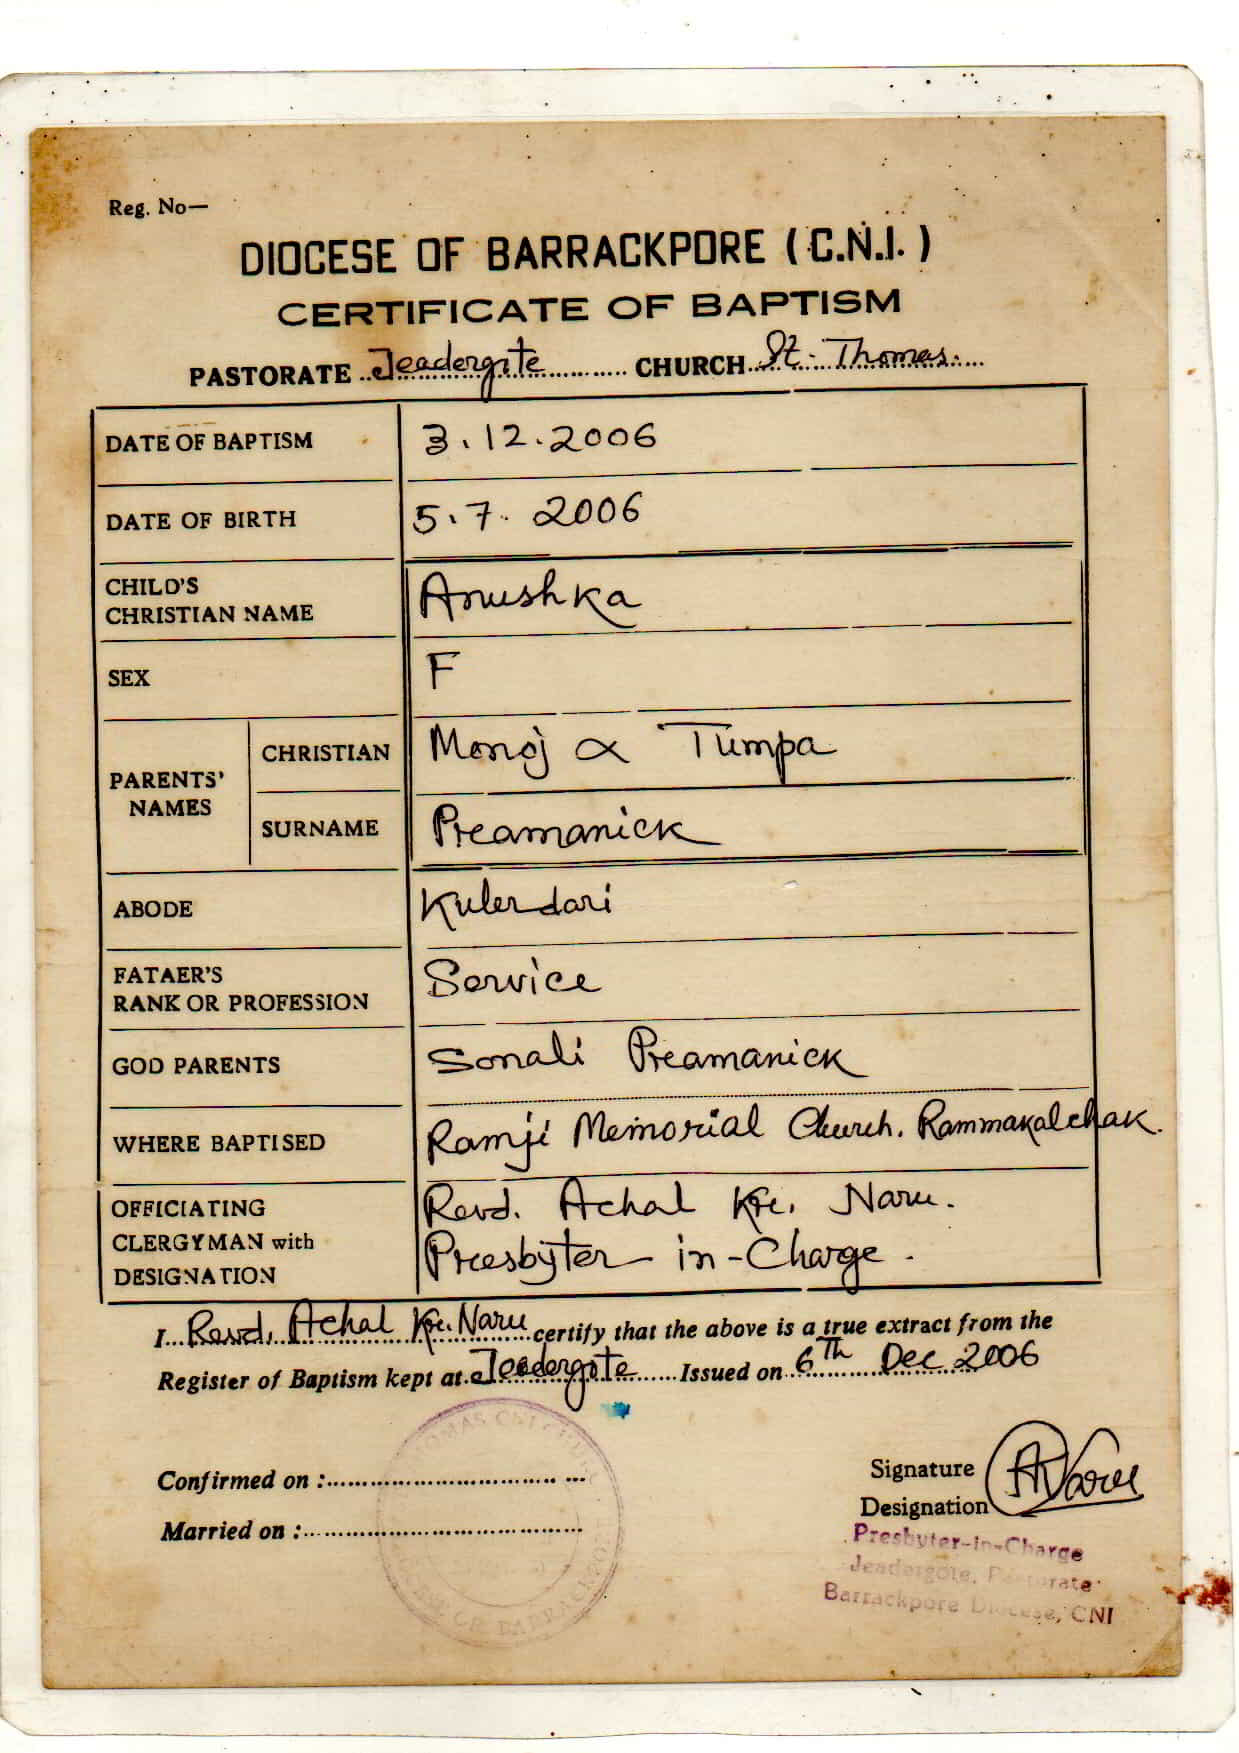 Reg. No—
DIOCESE OF BARRACKPORE ( C.N.I. )
CERTIFICATE OF BAPTISM
PASTORATE Jeadergote CHURCH St. Thomas.
DATE OF BAPTISM 3.12.2006
DATE OF BIRTH 5.7.2006
CHILD'S
CHRISTIAN NAME Anushka
SEX F
PARENTS' NAMES
CHRISTIAN Monoj & Tumpa
SURNAME Preamanick
ABODE Kulerdari
FATAER'S
RANK OR PROFESSION Service
GOD PARENTS Sonali Preamanick
WHERE BAPTISED Ramji Memorial Church. Rammakalchak.
OFFICIATING
CLERGYMAN with
DESIGNATION
Revd. Achal Kr. Naru.
Presbyter-in-Charge.
I... Revd. Achal Kr. Naru certify that the above is a true extract from the
Register of Baptism kept at Jeadergote Issued on 6Th Dec 2006
Confirmed on :
Married on :
Signature ANaru
Designation
Presbyter-in-Charge
Jeadergote, Pastorate
Barrackpore Diocese, CNI
THOMAS CNI CHURCH
BARRACKPORE